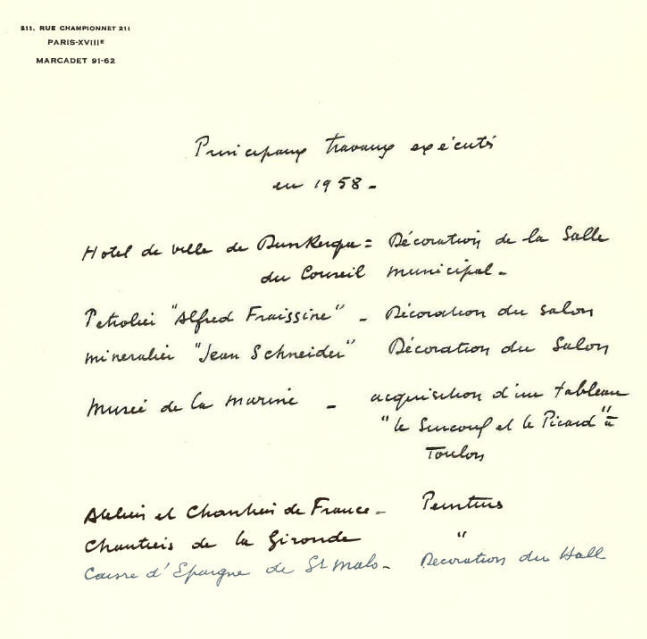 211, RUE CHAMPIONNET 211
PARIS-XVIIIᴱ
MARCADET 91-62
Principaux travaux exécutés
en 1958 -
Hotel de ville de Dunkerque = Décoration de la Salle
du Conseil Municipal -
Petrolier "Alfred Fraissine" - Décoration du salon
mineralier "Jean Schneider" Décoration du Salon
Musée de la Marine - acquisition d'un tableau
"le Surcouf et le Picard" à
Toulon
Ateliers et Chantiers de France - Peintures
Chantiers de la Gironde "
Caisse d'Epargne de St Malo - Decoration du Hall